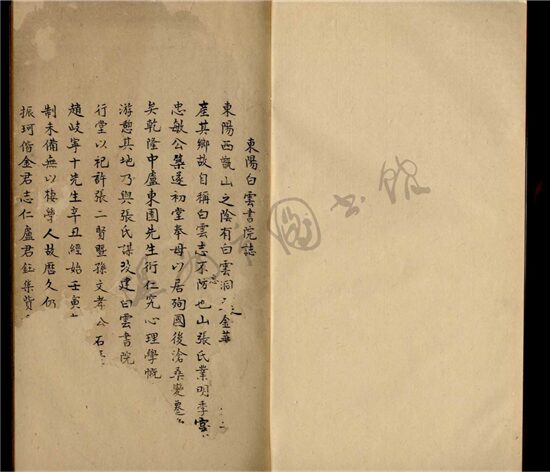 東陽白雲書院誌
東陽西甑山之陰有白雲洞 金華
産其鄉故自稱白雲志不忘也山張氏業明季
忠敏公築遂初堂奉母以居殉國後滄桑變
矣乾隆中盧東園先生衍仁究心理學慨
游憩其地乃與張氏謀改建白雲書院
行堂以祀許張二賢暨孫文孝公石
趙岐寧十先生辛丑經始壬寅
制未備無以棲學人故曆久仍
振珂偕金君志仁盧君鈺集貲
圖書館